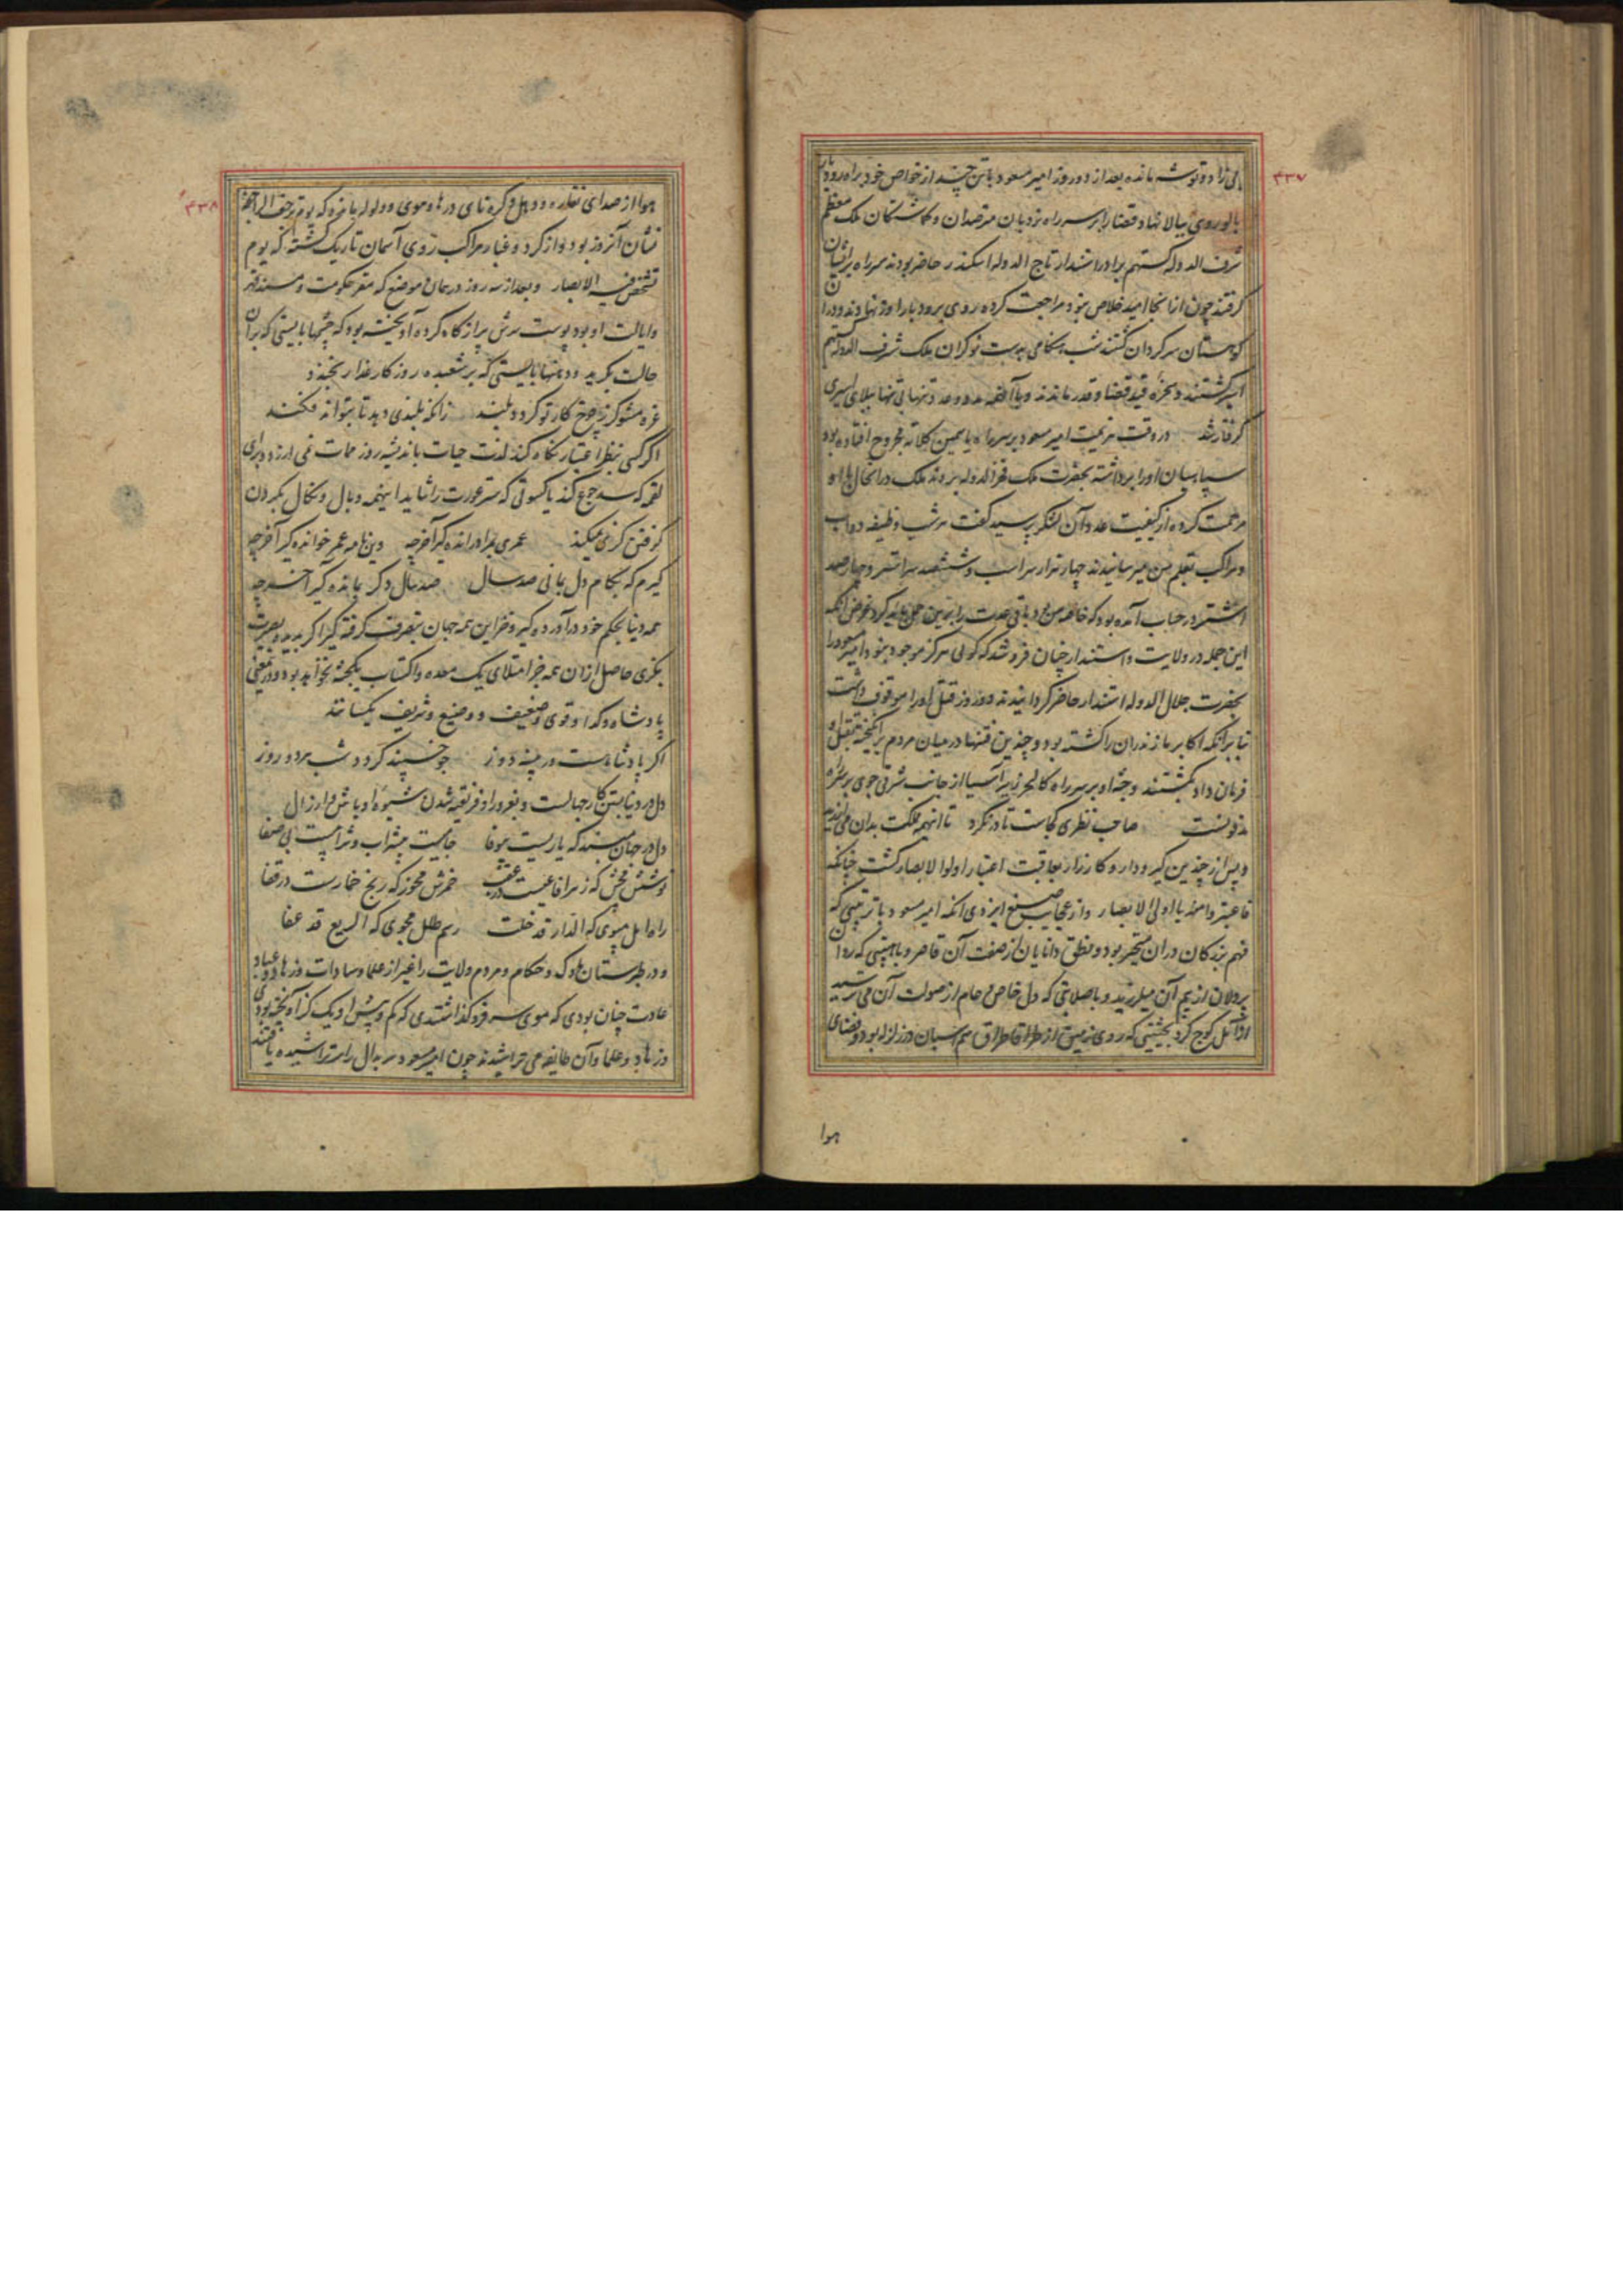 ۴۳۷
بی زاد و توشه مانده بعد از دو روز امیر مسعود با تنی چند از خواص خود براه رودبار
یالو روی ببالا نهاد قضا را بر سر راه نزدیان مترصدان و گماشتگان ملک معظم
شرف الدوله گستهم برادر استندار تاج الدوله اسکندر حاضر بودند سر راه بر ایشان
گرفتند چون از آنجا امید خلاص نبود مراجعت کرده روی برودبار اوز نهادند و در آن
کوهستان سرگردان گشتند شب هنگامی بدست نوکران ملک شرف الدوله گستهم
اسیر گشتند و سخره قید قضا و قدر ماندند و با آنهمه عدد و عدت تنها بی تنها ببلای اسیری
گرفتار شد در وقت هزیمت امیر مسعود بر سر راه یاسمین کلاته مجروح افتاده بود
سپاهیان او را برداشته بحضرت ملک فخر الدوله بردند ملک در آنحال با او
مرحمت کرده از کیفیت عدد آن لشکر پرسید گفت هر شب وظیفه دواب
و مراکب بقلم من میرسانیدند چهار هزار سر اسب و ششصد سر استر و چهارصد
اشتر در حساب آمده بود که خاصه من بود باقی عدت را برین حمل باید کرد غرض آنکه
این جمله در ولایت استندار چنان فرو شد که گوئی هرگز موجود نبود امیر مسعود را
بحضرت جلال الدوله استندار حاضر گردانیدند دو روز قتل او را موقوف داشت
بنا بر آنکه اکابر مازندران را کشته بود و چندین فتنها در میان مردم بر انگیخته بقتل او
فرمان داد بکشتند و جثه او بر سر راه کالجر زیر آسیا از جانب شرقی جوی بر سر راه
مدفونست صاحب نظری کجاست تا در نگرد تا اینهمه مملکت بدان می ارزد
و پس از چندین گیر و دار و کارزار بعاقبت اعتبار اولوا الابصار گشت چنانکه
فاعتبروا منه یا اولی الابصار و از عجایب صنع ایزدی آنکه امیر مسعود با ترتیبی که
فهم بزرگان در آن متحیر بود و نطق دانایان از صفت آن قاصر و با هیبتی که روان
پردلان از بیم آن میلرزید و با صلابتی که دل خاص و عام از صولت آن می ترسید
از آمل کوچ کرد بحیثیتی که روی زمین از طراقا طراق سم اسبان در زلزله بود و فضای
هوا
۴۳۸
هوا از صدای نقاره و دهل و کره نای در های و هوی و ولوله با مزه که یوم ترجف الراجفة
نشان آنروز بود و از گرد و غبار مراکب روی آسمان تاریک گشته که یوم
تشخص فیه الابصار و بعد از سه روز در همان موضع که مقر حکومت و مسند قهر
و ایالت او بود پوست سرش پر از کاه کرده آویخته بود که چشمها بایستی که بر آن
حالت بگرید و دهنها بایستی که بر شعبده روزگار غدار بخندد
غره مشو گر ز چرخ کار تو گردد بلند زانکه بلندی دهد تا بتواند فکند
اگر کسی بنظر اعتبار نگاه کند لذت حیات باندیشه روز ممات نمی ارزد و برای
لقمه که سد جوع کند یا کسوتی که ستر عورت را شاید اینهمه وبال و نکال بگردن
گرفتن کری نمیکند عمری بمراد رانده گیر آخر چه وین نامه عمر خوانده گیر آخر چه
گیرم که بکام دل بمانی صد سال صد سال دگر بمانده گیر آخر چه
همه دنیا بحکم خود در آورده گیر و خزاین همه جهان بتصرف گرفته گیر اگر بدیده بصیرت
بنگری حاصل از آن همه جز امتلای یک معده و اکتساب یکجثه نخواهد بود و در معنی
پادشاه و گدا و قوی و ضعیف و وضیع و شریف یکسانند
اگر پادشاهست و ر پینه دوز چو خسپند گردد شب هر دو روز
دل در دنیا بستن کار جهالست و بغرور او فریفته شدن شیوه اوباش و ارذال
دل در جهان مبند که یاریست بیوفا جامیست بیشراب و شرابیست بی صفا
نوشش مچش که زهر افاعیست در عقب خمرش مخور که رنج خمارست در قفا
راه امل مپوی که الدار قد خلت رسم طلل مجوی که الربع قد عفا
و در طبرستان ملوک و حکام و مردم ولایت را غیر از علما و سادات و زهاد و عباد
عادت چنان بودی که موی سر فرو گذاشتندی که کم و بیش او یک گز آویخته بودی
و زهاد و علما و آن طایفه می تراشیدند چون امیر مسعود سر بدال راست تراشیده یافتند